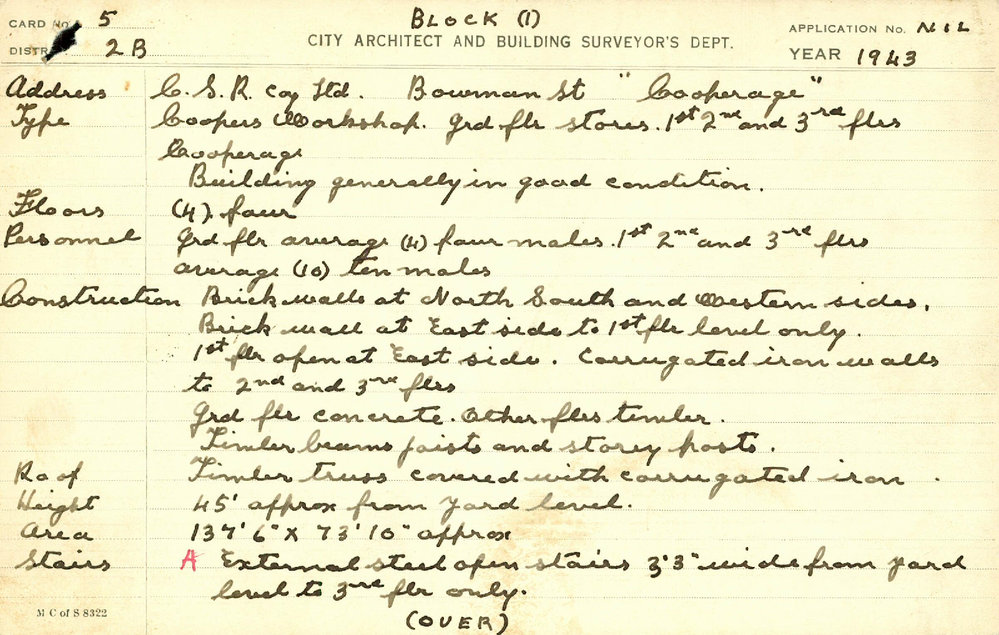 CARD No. 5 BLOCK (1) APPLICATION No. NIL
DISTR 2B CITY ARCHITECT AND BUILDING SURVEYOR'S DEPT. YEAR 1943
Address C. S. R. Coy Ltd. Bowman St "Cooperage"
Type Coopers Workshop. Grd flr stores. 1st 2nd and 3rd flrs
Cooperage
Building generally in good condition.
Floors (4) four
Personnel Grd flr average (4) four males. 1st 2nd and 3rd flrs
average (10) ten males
Construction Brick walls at North South and Western sides.
Brick wall at East side to 1st flr level only.
1st flr open at East side. Corrugated iron walls
to 2nd and 3rd flrs
Grd flr concrete. Other flrs timber.
Timber beams joists and storey posts.
Roof Timber truss covered with corrugated iron.
Height 45' approx from yard level.
Area 137' 6" X 73' 10" approx
Stairs A External steel open stairs 3'3" wide from yard
level to 3rd flr only.
M C of S 8322 (OVER)